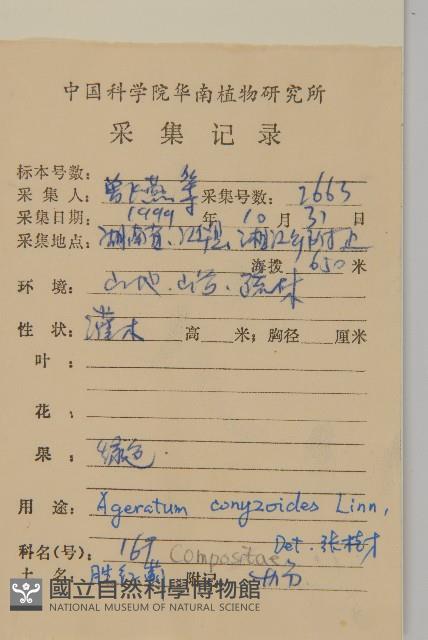 中国科学院华南植物研究所
采集记录
标本号数：
采集人：曾飞燕等 采集号数：2663
采集日期：1999年10月31日
采集地点：湖南省、江华县、湘江乡附近
海拨 650 米
环境：山地.山谷.疏林
性状：灌木 高 米；胸径 厘米
叶：
花：
果：绿色
用途：Ageratum conyzoides Linn,
科名（号）：169 Compositae Det. 张桂才
土名：胜红蓟 附记
國立自然科學博物館
NATIONAL MUSEUM OF NATURAL SCIENCE